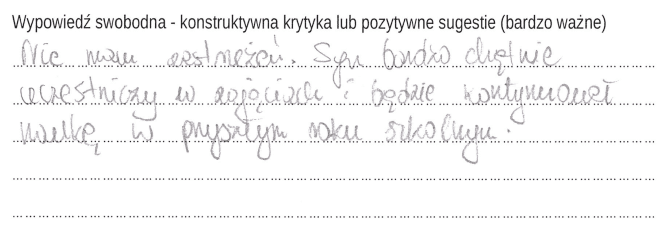 Wypowiedź swobodna - konstruktywna krytyka lub pozytywne sugestie (bardzo ważne)
Nie mam zastrzeżeń. Syn bardzo chętnie
uczestniczy w zajęciach i będzie kontynuował
naukę w przyszłym roku szkolnym.